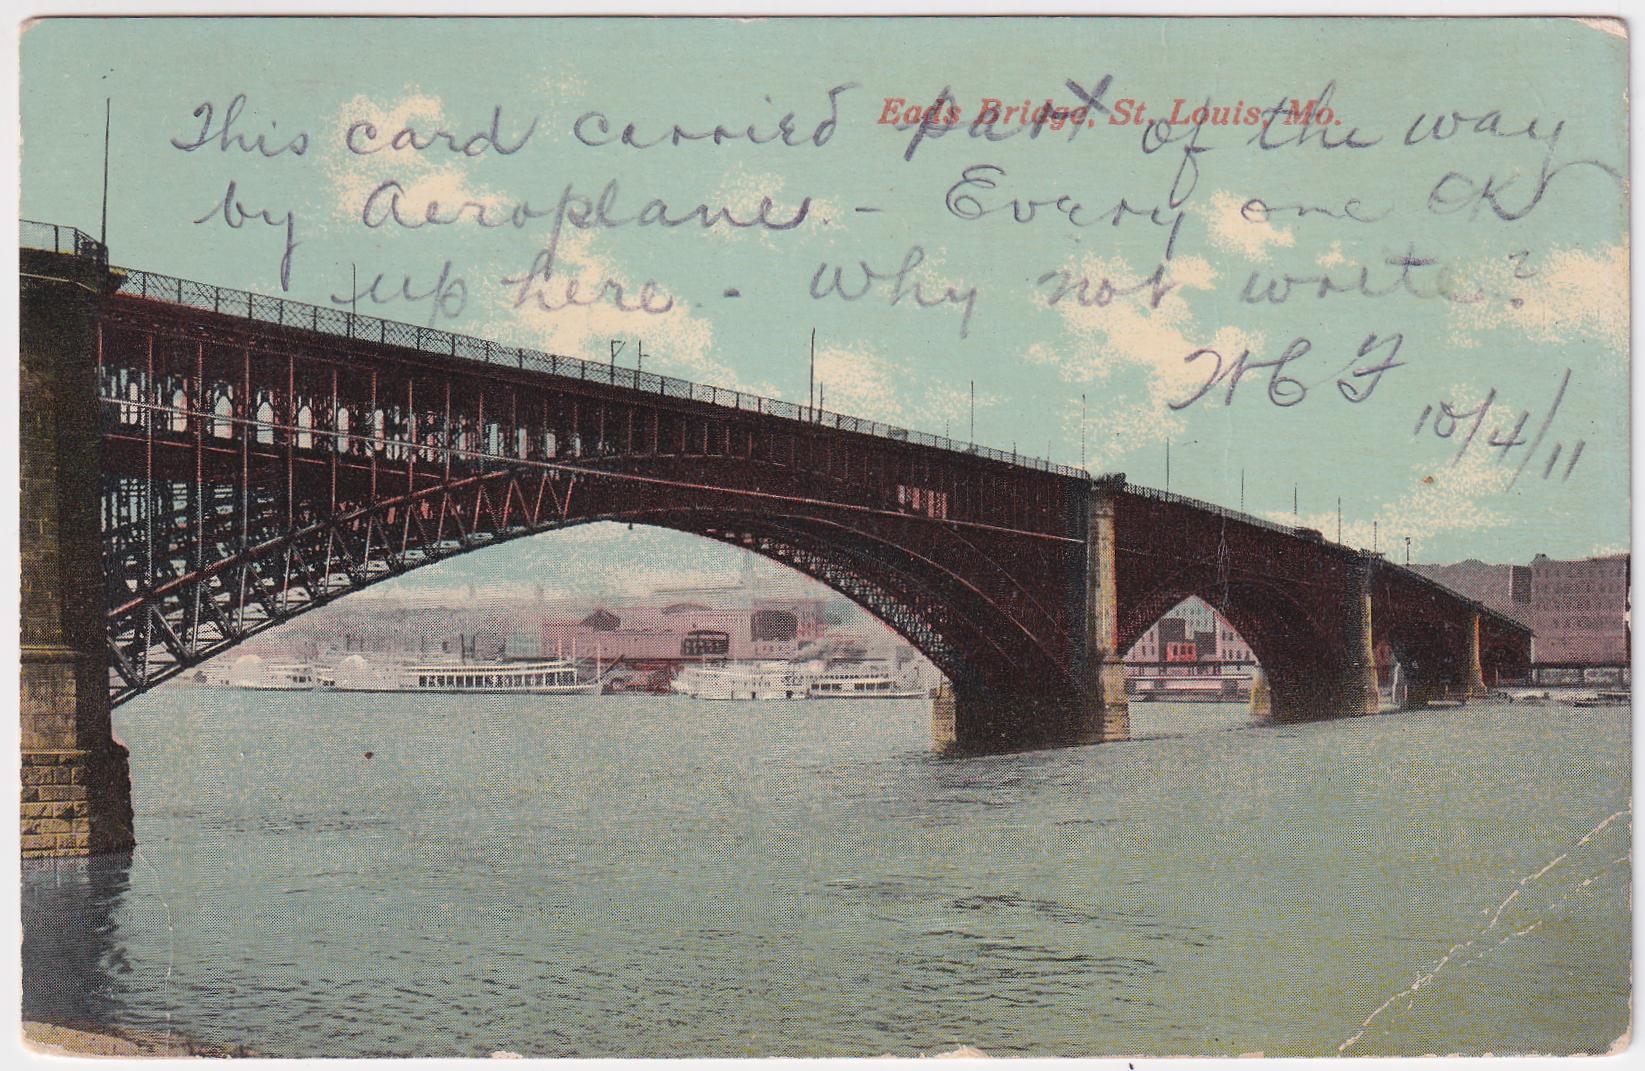 Eads Bridge, St. Louis, Mo.
This card carried part of the way
by Aeroplane. - Every one OK
up here. - Why not write?
WCF
10/4/11